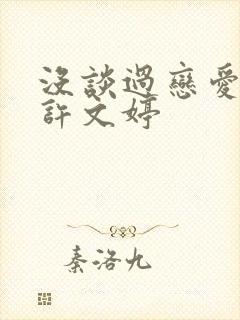 沒談過戀愛
許文婷
秦洛九